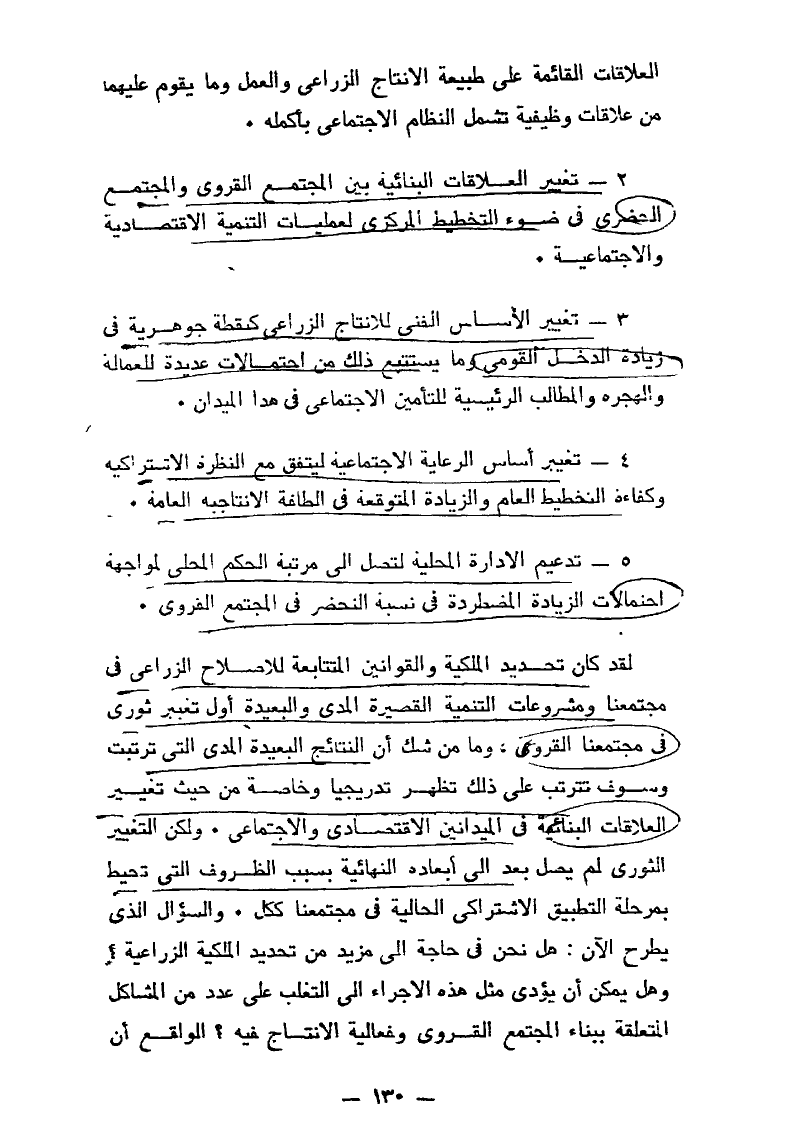 العلاقات القائمة على طبيعة الانتاج الزراعى والعمل وما يقوم عليهما
من علاقات وظيفية تشمل النظام الاجتماعى بأكمله .
٢ — تغيير العـلاقات البنائية بين المجتمـع القروى والمجتمـع
الحضرى فى ضـوء التخطيط المركزى لعمليـات التنمية الاقتصـادية
والاجتماعيـة .
٣ — تغيير الأسـاس الفنى للانتاج الزراعى كنقطة جوهـرية فى
زيادة الدخـل القومى وما يستتبع ذلك من احتمـالات عديدة للعمالة
والهجره والمطالب الرئيسية للتأمين الاجتماعى فى هدا الميدان .
٤ — تغيير أساس الرعاية الاجتماعية ليتفق مع النظرة الاشتراكيه
وكفاءة التخطيط العام والزيادة المتوقعة فى الطاقة الانتاجيه العامة .
٥ — تدعيم الادارة المحلية لتصل الى مرتبة الحكم المحلى لمواجهة
احتمالات الزيادة المضطردة فى نسبة التحضر فى المجتمع القروى .
لقد كان تحـديد الملكية والقوانين المتتابعة للاصـلاح الزراعى فى
مجتمعنا ومشروعات التنمية القصيرة المدى والبعيدة أول تغيير ثورى
فى مجتمعنا القروى ، وما من شك أن النتائج البعيدة المدى التى ترتبت
وسـوف تترتب على ذلك تظهـر تدريجيا وخاصـة من حيث تغيـير
العلاقات البنائية فى الميدانين الاقتصـادى والاجتماعى . ولكن التغيير
الثورى لم يصل بعد الى أبعاده النهائية بسبب الظروف التى تحيط
بمرحلة التطبيق الاشتراكى الحالية فى مجتمعنا ككل . والسؤال الذى
يطرح الآن : هل نحن فى حاجة الى مزيد من تحديد الملكية الزراعية ؟
وهل يمكن أن يؤدى مثل هذه الاجراء الى التغلب على عدد من المشاكل
المتعلقة ببناء المجتمع القـروى وفعالية الانتـاج فيه ؟ الواقـع أن
— ١٣٠ —